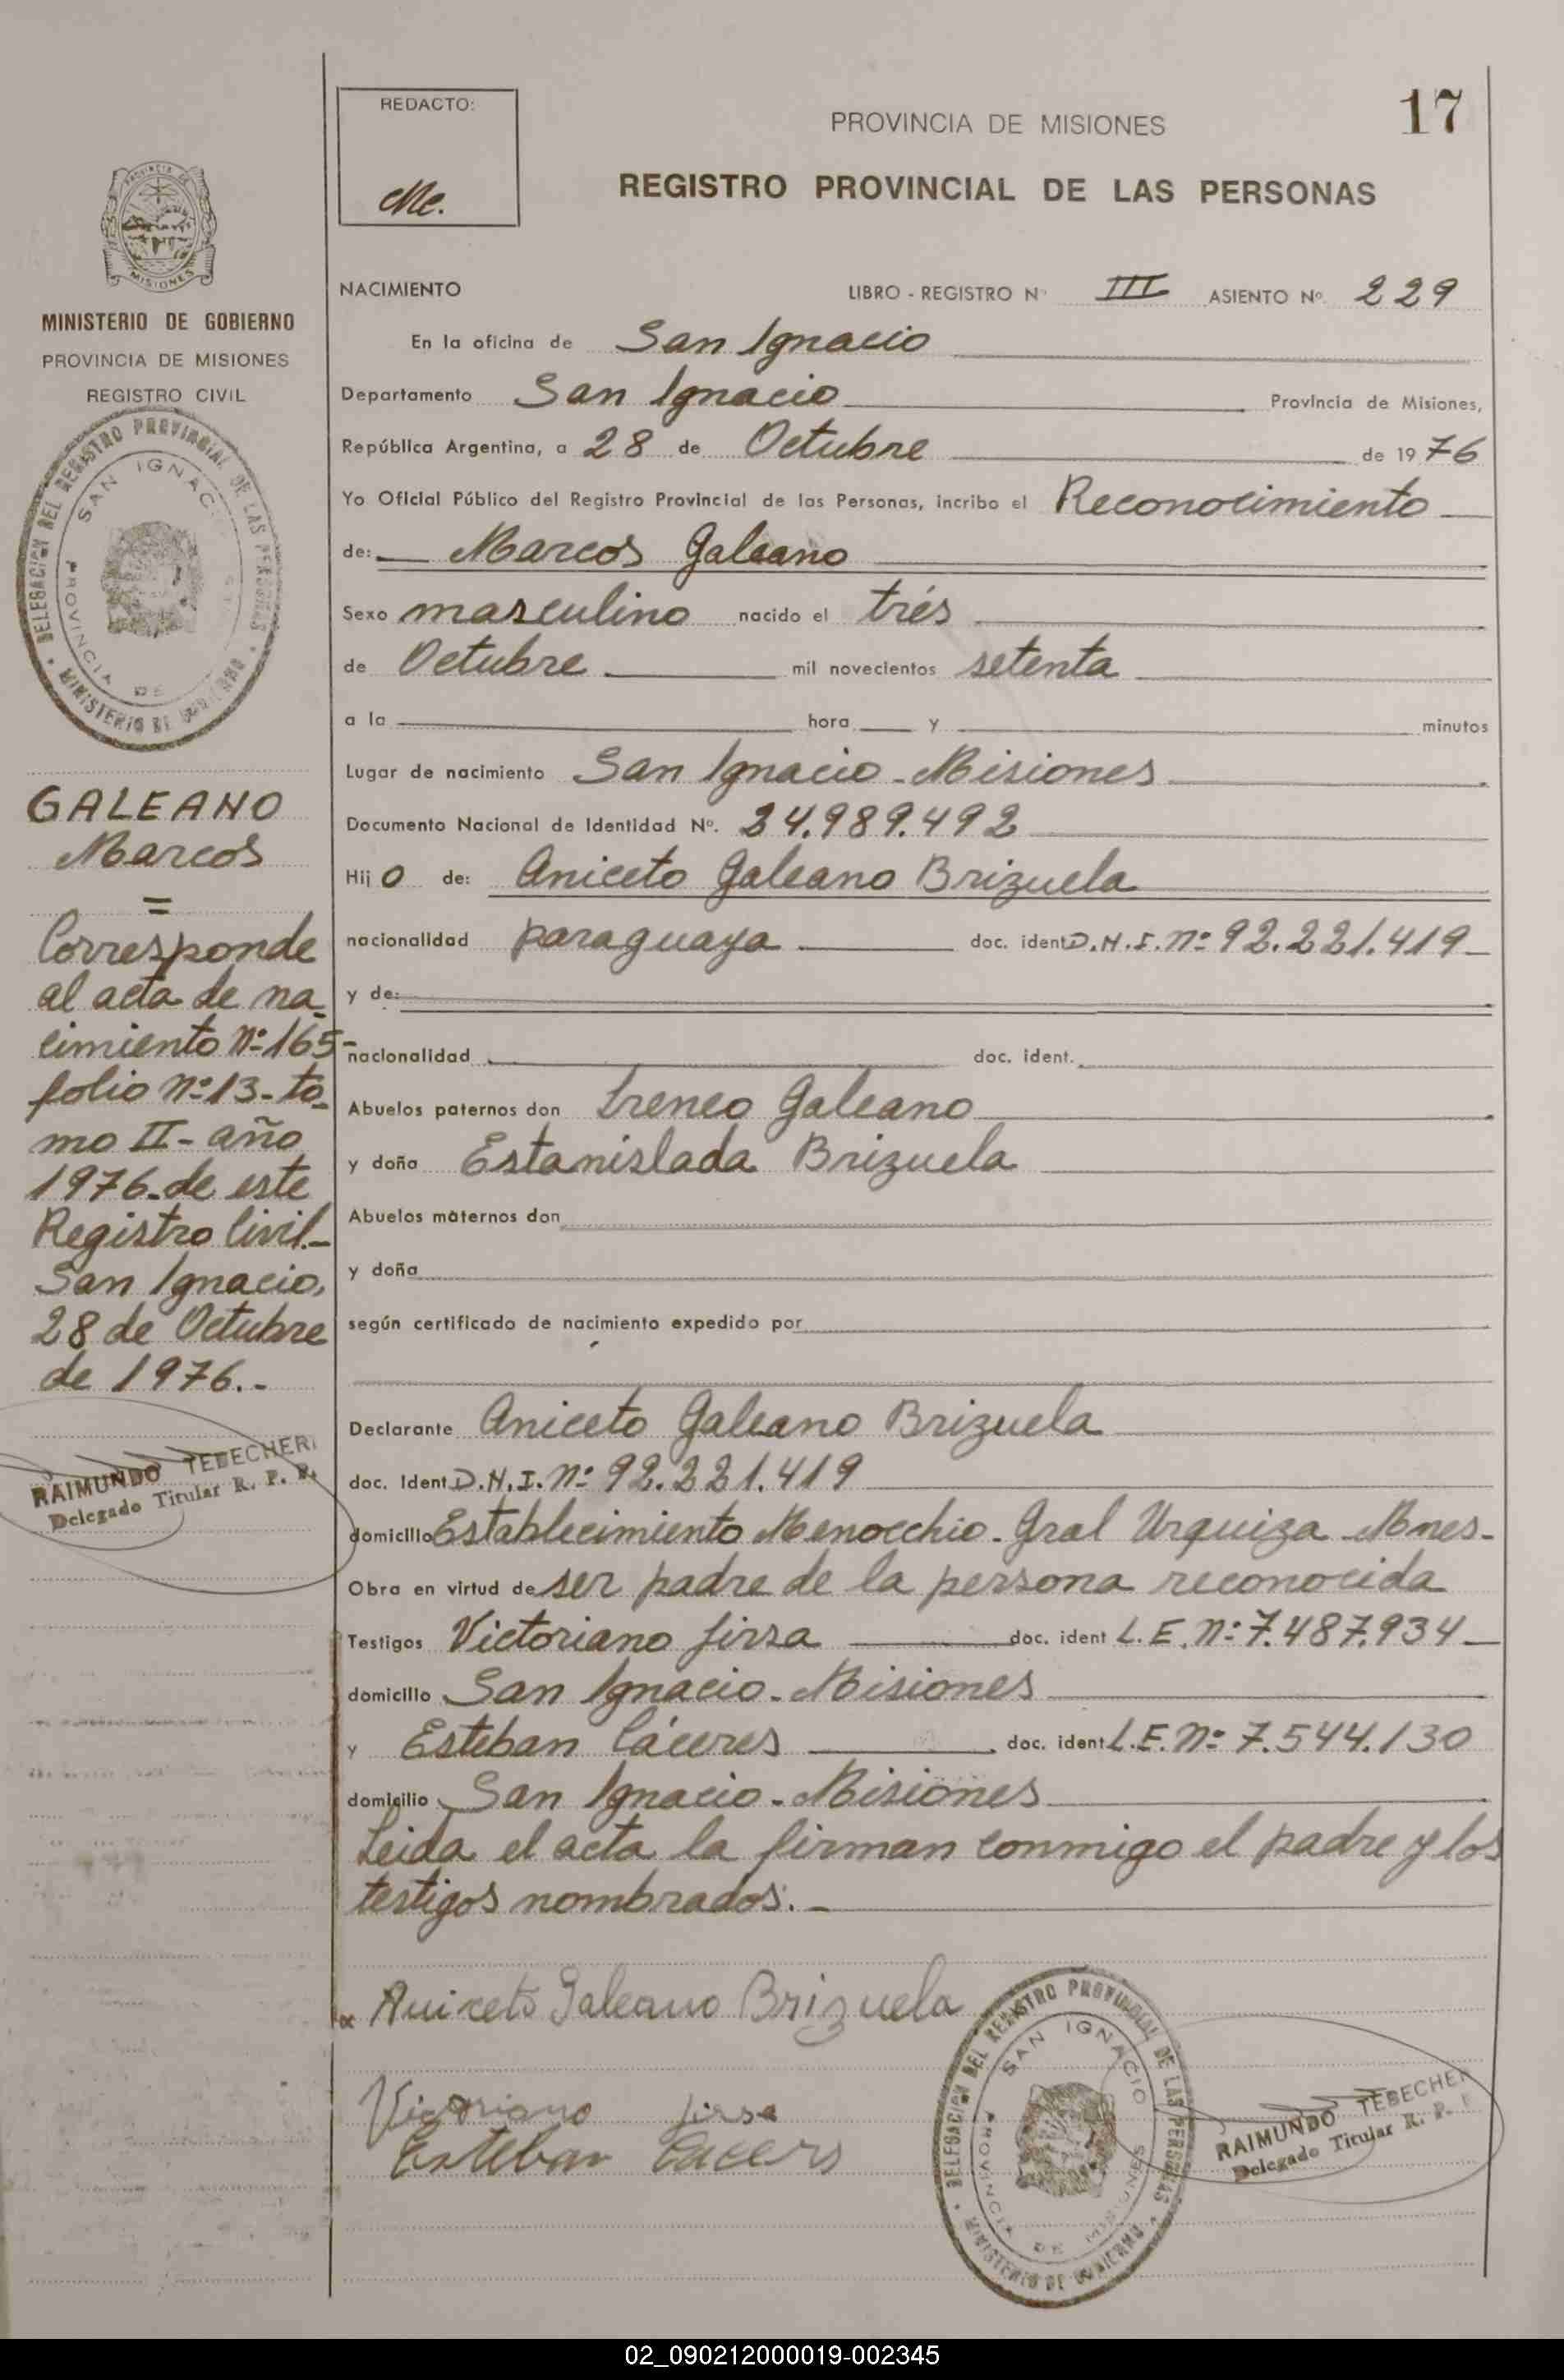 REDACTO:
Me.
PROVINCIA DE MISIONES
17
REGISTRO PROVINCIAL DE LAS PERSONAS
NACIMIENTO LIBRO - REGISTRO Nº III ASIENTO Nº 229
En la oficina de San Ignacio
Departamento San Ignacio Provincia de Misiones,
República Argentina, a 28 de Octubre de 1976
Yo Oficial Público del Registro Provincial de las Personas, incribo el Reconocimiento
de: Marcos Galeano
Sexo masculino nacido el trés
de Octubre mil novecientos setenta
a la hora y minutos
Lugar de nacimiento San Ignacio - Misiones
Documento Nacional de Identidad Nº. 24.989.492
Hijo de: Aniceto Galeano Brizuela
nacionalidad paraguaya doc. ident D.N.I. Nº 92.221.419
y de:
nacionalidad doc. ident.
Abuelos paternos don Ireneo Galeano
y doña Estanislada Brizuela
Abuelos maternos don
y doña
según certificado de nacimiento expedido por
Declarante Aniceto Galeano Brizuela
doc. Ident D.N.I. Nº 92.221.419
domicilio Establecimiento Menocchio - Gral Urquiza Mnes-
Obra en virtud de ser padre de la persona reconocida
Testigos Victoriano Jirsa doc. ident L.E. Nº 7.487.934
domicilio San Ignacio - Misiones
y Esteban Cáceres doc. ident L.E. Nº 7.544.130
domicilio San Ignacio - Misiones
Leida el acta la firman conmigo el padre y los
testigos nombrados.-
Aniceto Galeano Brizuela
Victoriano Jirsa
Esteban Caceres
DELEGACION DEL REGISTRO PROVINCIAL DE LAS PERSONAS
SAN IGNACIO
PROVINCIA DE MISIONES
MINISTERIO DE GOBIERNO
RAIMUNDO TEBECHERI
Delegado Titular R. P. P.
PROVINCIA DE
MISIONES
MINISTERIO DE GOBIERNO
PROVINCIA DE MISIONES
REGISTRO CIVIL
DELEGACION DEL REGISTRO PROVINCIAL DE LAS PERSONAS
SAN IGNAC
PROVINCIA DE
MINISTERIO DE GOBIERNO
GALEANO
Marcos
=
Corresponde
al acta de na-
cimiento Nº 165-
folio Nº 13- to-
mo II - año
1976- de este
Registro Civil.-
San Ignacio,
28 de Octubre
de 1976.-
RAIMUNDO TEBECHERI
Delegado Titular R. P. P.
02_090212000019-002345